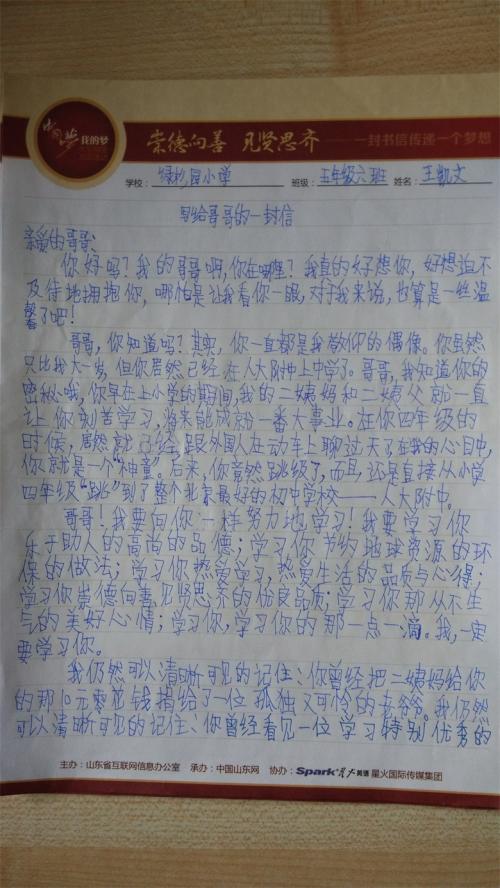 中国梦 我的梦
崇德向善 见贤思齐 一封书信传递一个梦想
学校：绿杉园小学 班级：五年级六班 姓名：王凯文
写给哥哥的一封信
亲爱的哥哥：
你好吗？我的哥哥啊，你在哪里？我真的好想你，好想迫不
及待地拥抱你，哪怕是让我看你一眼，对于我来说，也算是一丝温
馨了吧！
哥哥，你知道吗？其实，你一直都是我敬仰的偶像。你虽然
只比我大一岁，但你居然已经在人大附中上中学了。哥哥，我知道你的
密秘哦，你早在上小学的期间，我的二姨妈和二姨父就一直
让你刻苦学习，将来能成就一番大事业。在你四年级的
时候，居然就已经跟外国人在动车上聊过天了，在我的心目中，
你就是一个“神童”。后来，你竟然跳级了，而且还是直接从小学
四年级“跳”到了整个北京最好的初中学校——人大附中。
哥哥！我要向你一样努力地学习！我要学习你
乐于助人的高尚的品德；学习你节约地球资源的环
保的做法；学习你热爱学习，热爱生活的品质与心得；
学习你崇德向善，见贤思齐的优良品质；学习你那从不生
气的美好心情；学习你，学习你的那一点一滴。我，一定
要学习你。
我仍然可以清晰可见的记住：你曾经把二姨妈给你
的那10元零花钱捐给了一位孤独又可怜的老爷爷。我仍然
可以清晰可见的记住：你曾经看见一位学习特别优秀的
主办：山东省互联网信息办公室 承办：中国山东网 协办：Spark星火英语 星火国际传媒集团